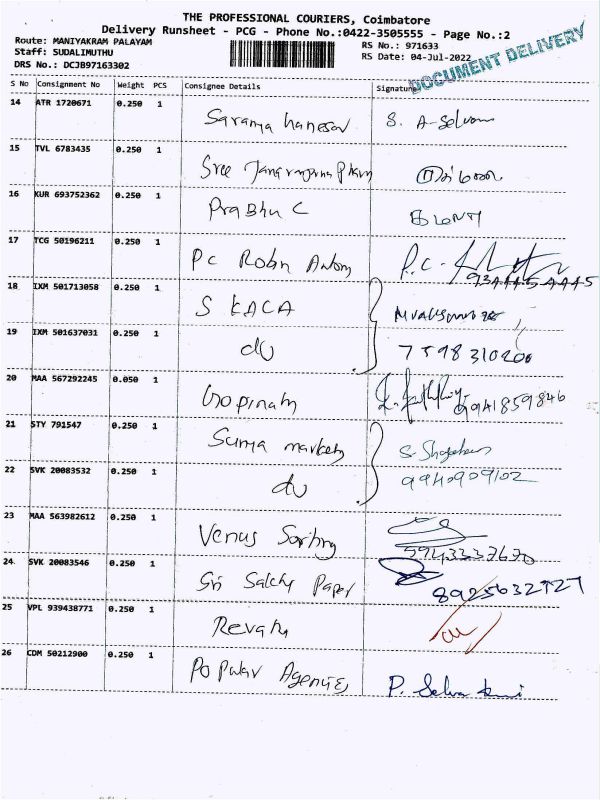 THE PROFESSIONAL COURIERS, Coimbatore
Delivery Runsheet - PCG - Phone No.:0422-3505555 - Page No.:2
Route: MANIYAKRAM PALAYAM
Staff: SUDALIMUTHU
DRS No.: DCJB97163302
RS No.: 971633
RS Date: 04-Jul-2022
DOCUMENT DELIVERY
S No Consignment No Weight PCS Consignee Details Signature
14 ATR 1720671 0.250 1 S. A-Selvam
15 TVL 6783435 0.250 1 Sree
16 KUR 693752362 0.250 1 PraBhu C
17 TCG 50196211 0.250 1 Pc Robin Antony P.C-
18 IXM 501713058 0.250 1 S KACA
19 IXM 501637031 0.250 1 do 7598310200
20 MAA 567292245 0.050 1 Gopinath 9941859846
21 STY 791547 0.250 1 Surya
22 SVK 20083532 0.250 1 do 9940909102
23 MAA 563982612 0.250 1 Venus
24 SVK 20083546 0.250 1 Sri Sakthi Paper
25 VPL 939438771 0.250 1 Revathy
26 CDM 50212900 0.250 1 Popular Agencies P. Selva